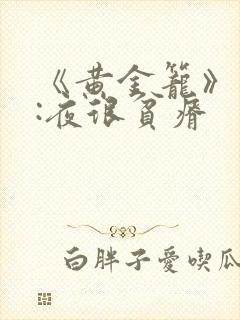 《黄金籠》
:夜很負瘠
白胖子愛喫瓜